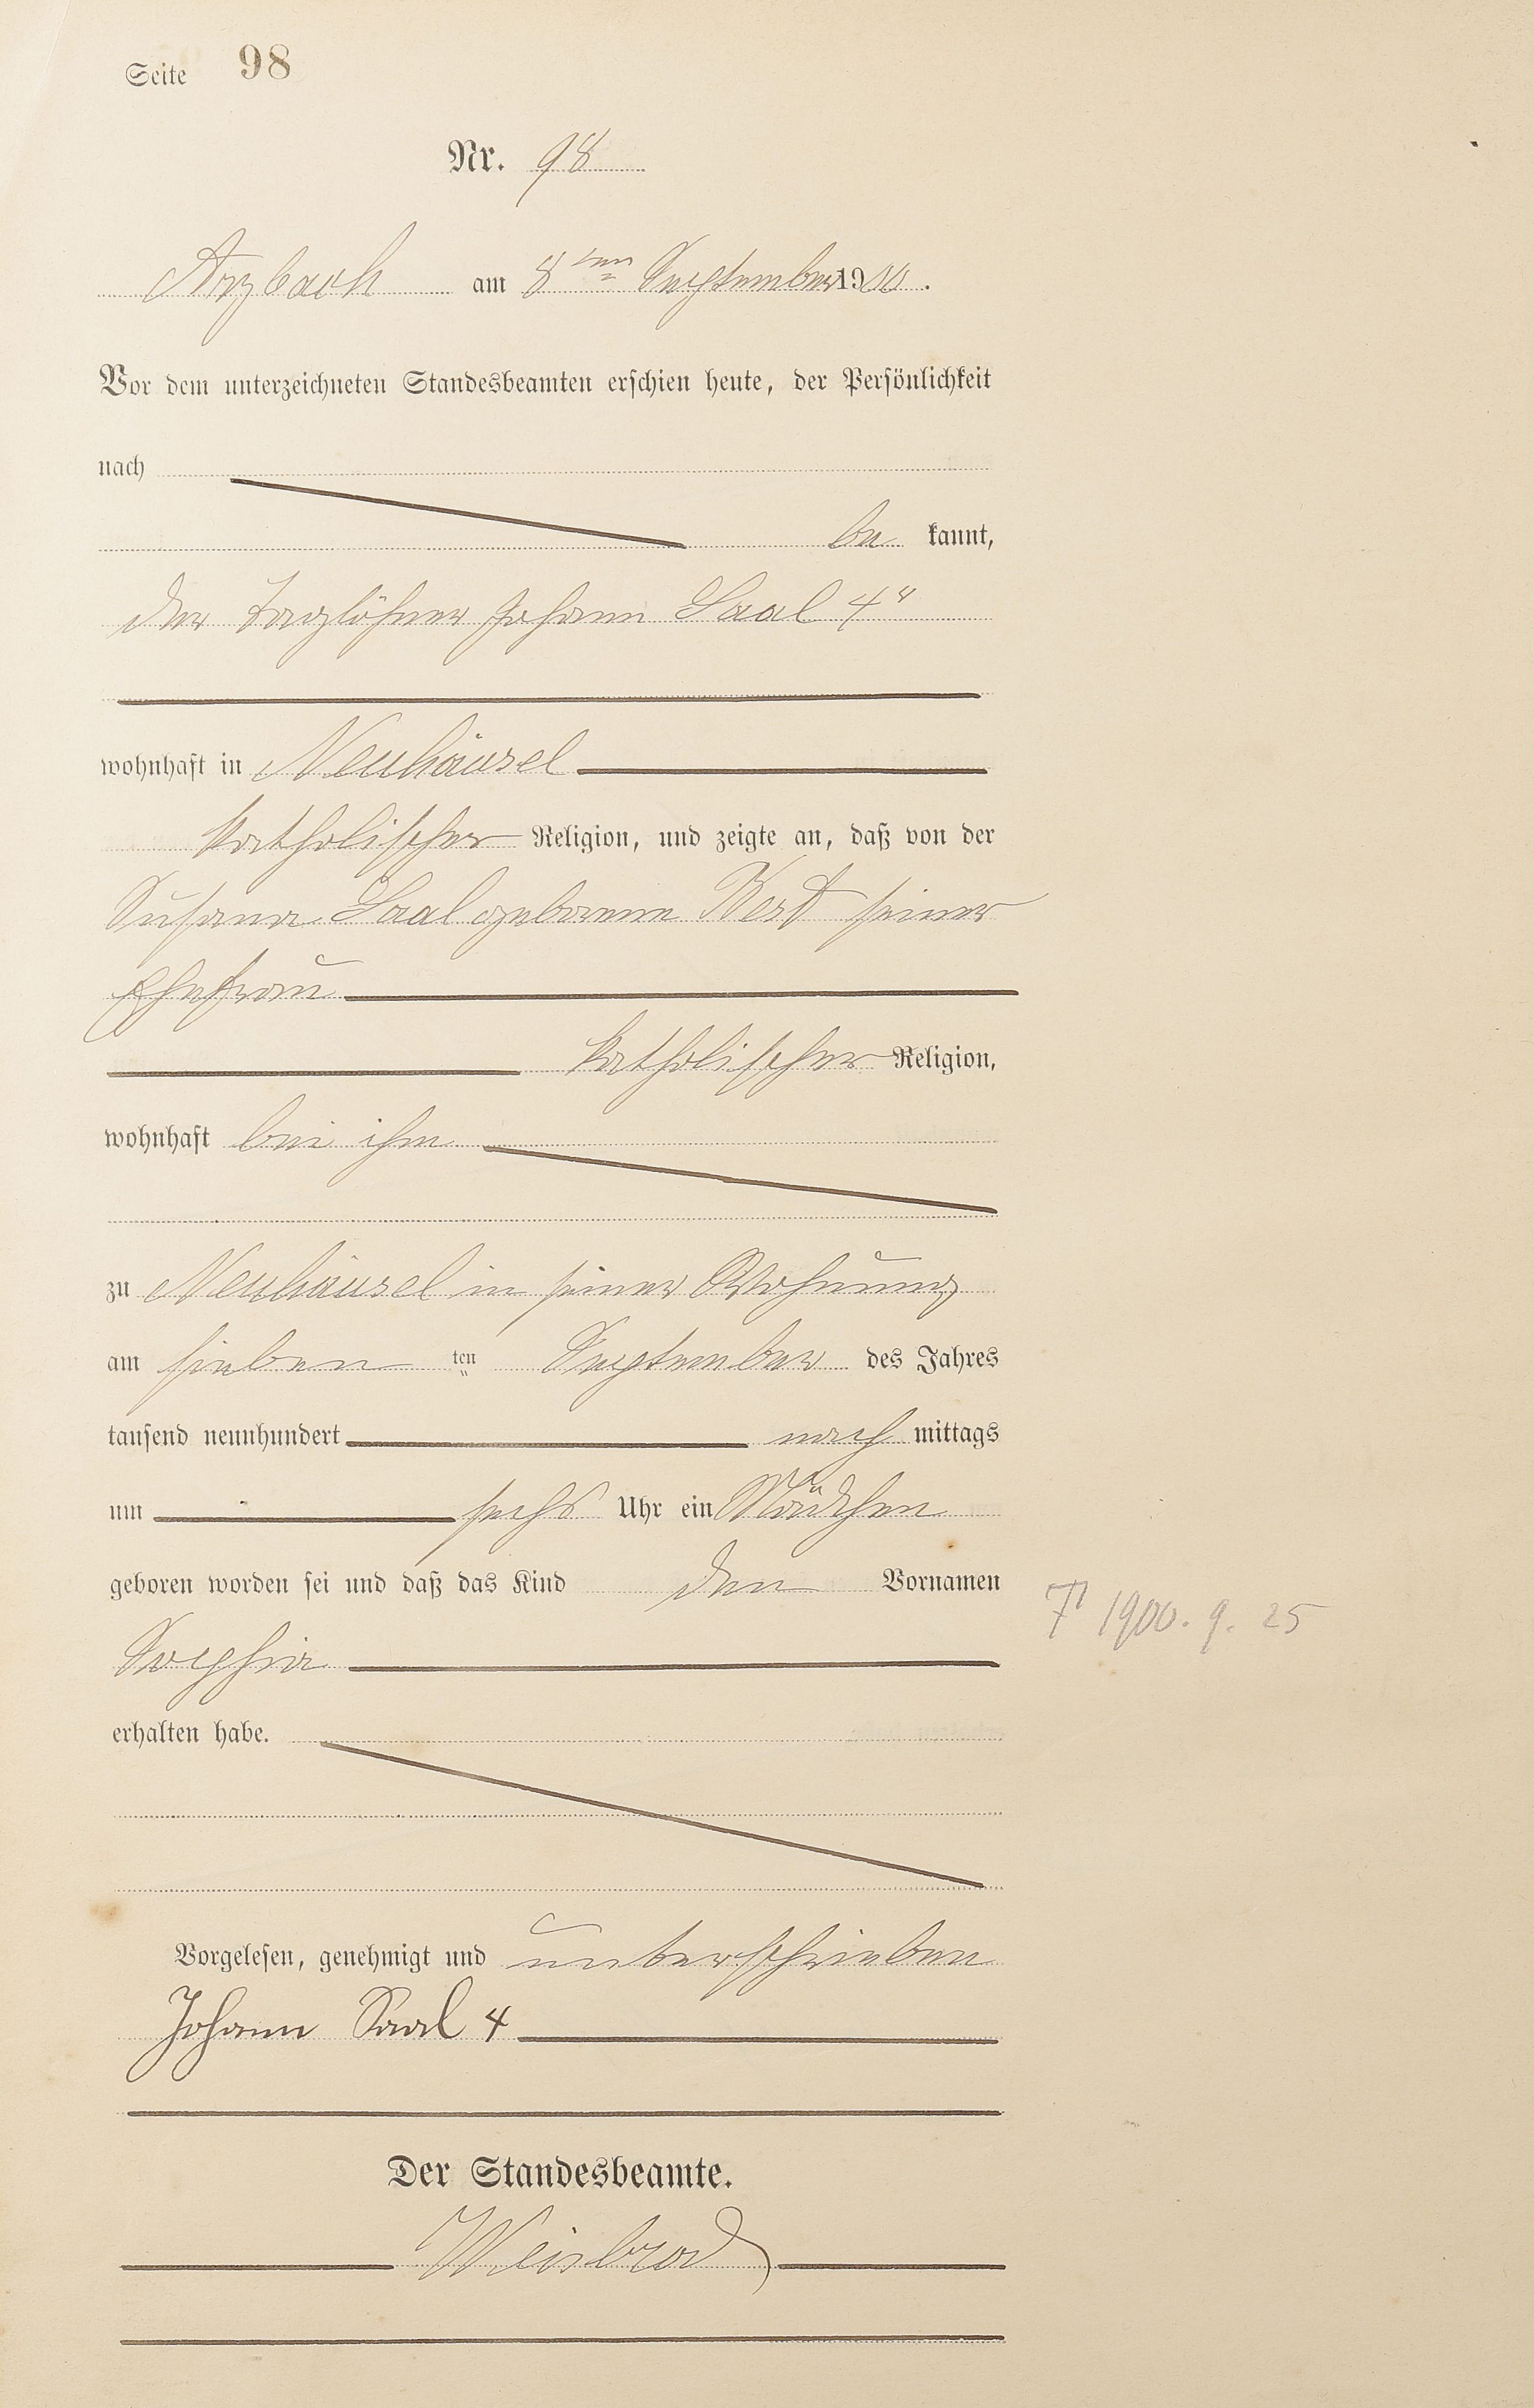 Seite 98
Nr. 98
Arzbach am 8ten September 1900.
Vor dem unterzeichneten Standesbeamten erschien heute, der Persönlichkeit
nach
be kannt,
der Taglöhner Johann Saal 4r
wohnhaft in Neuhäusel
katholischer Religion, und zeigte an, daß von der
Susana Saal geborene Best seiner
Ehefrau
katholischer Religion,
wohnhaft bei ihm
zu Neuhäusel in seiner Wohnung
am sieben ten September des Jahres
tausend neunhundert nach mittags
um sechs Uhr ein Mädchen
geboren worden sei und daß das Kind den Vornamen
† 1900. 9. 25
Sophia
erhalten habe.
Vorgelesen, genehmigt und unterschrieben
Johann Saal 4
Der Standesbeamte.
Weisbrod